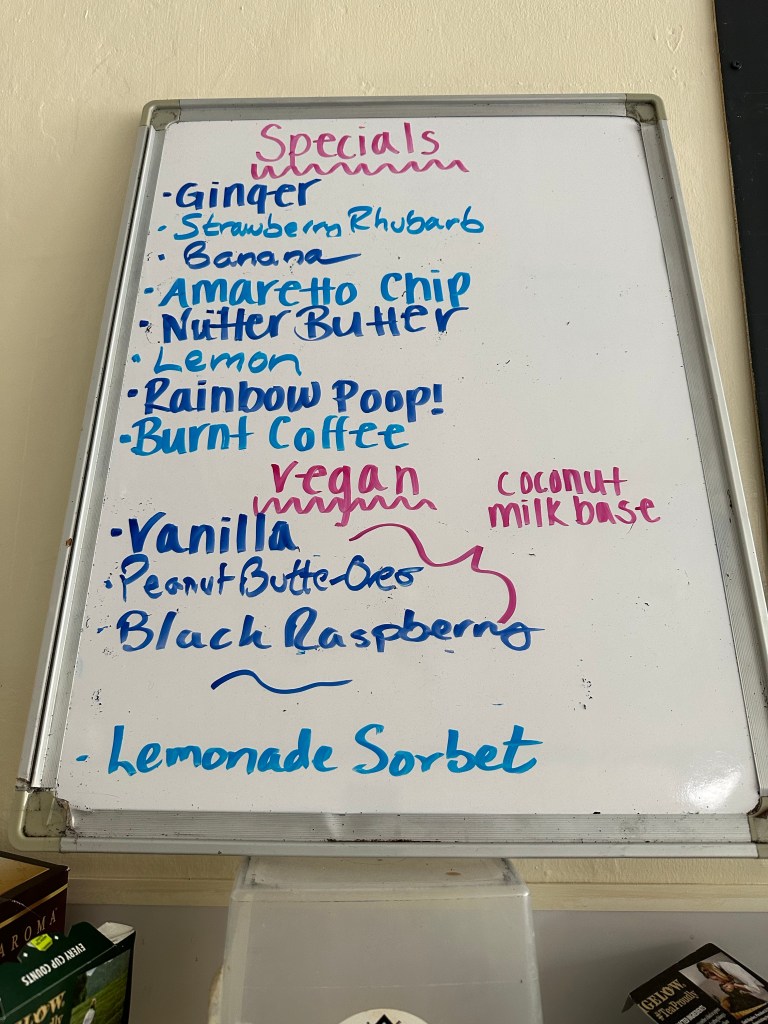 Specials
·Ginger
·Strawberry Rhubarb
·Banana
·Amaretto Chip
·Nutter Butter
·Lemon
·Rainbow Poop!
·Burnt Coffee
Vegan
coconut
milk base
·Vanilla
·Peanut Butte-Oreo
·Black Raspberry
·Lemonade Sorbet
AROMA
EVERY CUP COUNTS
GELOW
#TeaProudly